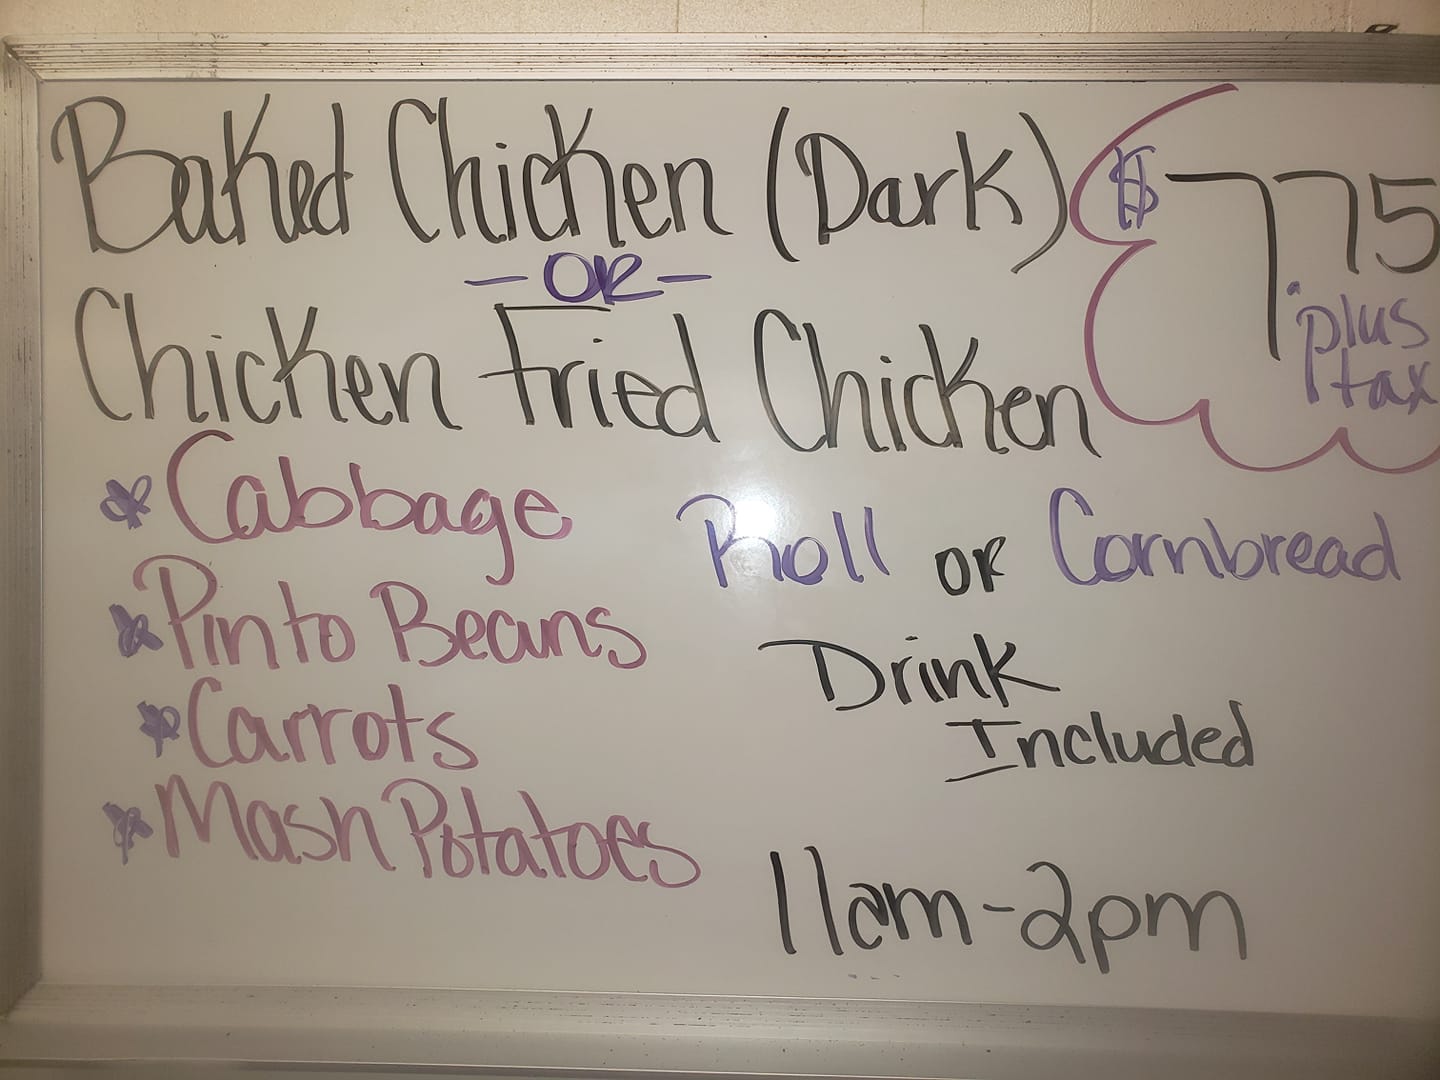 Baked Chicken (Dark)
$7.75
plus
tax
- OR -
Chicken Fried Chicken
* Cabbage
Roll or Cornbread
* Pinto Beans
Drink
Included
* Carrots
* Mash Potatoes
11am-2pm